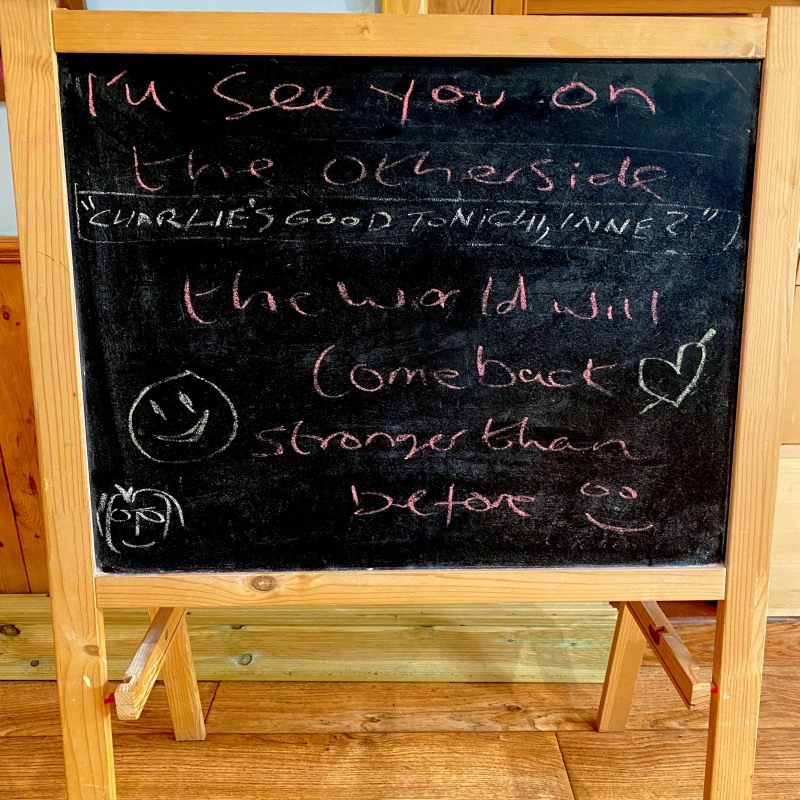 I'll see you on
the otherside
("CHARLIE'S GOOD TONIGHT, INNE?")
the world will
come back
stronger than
before